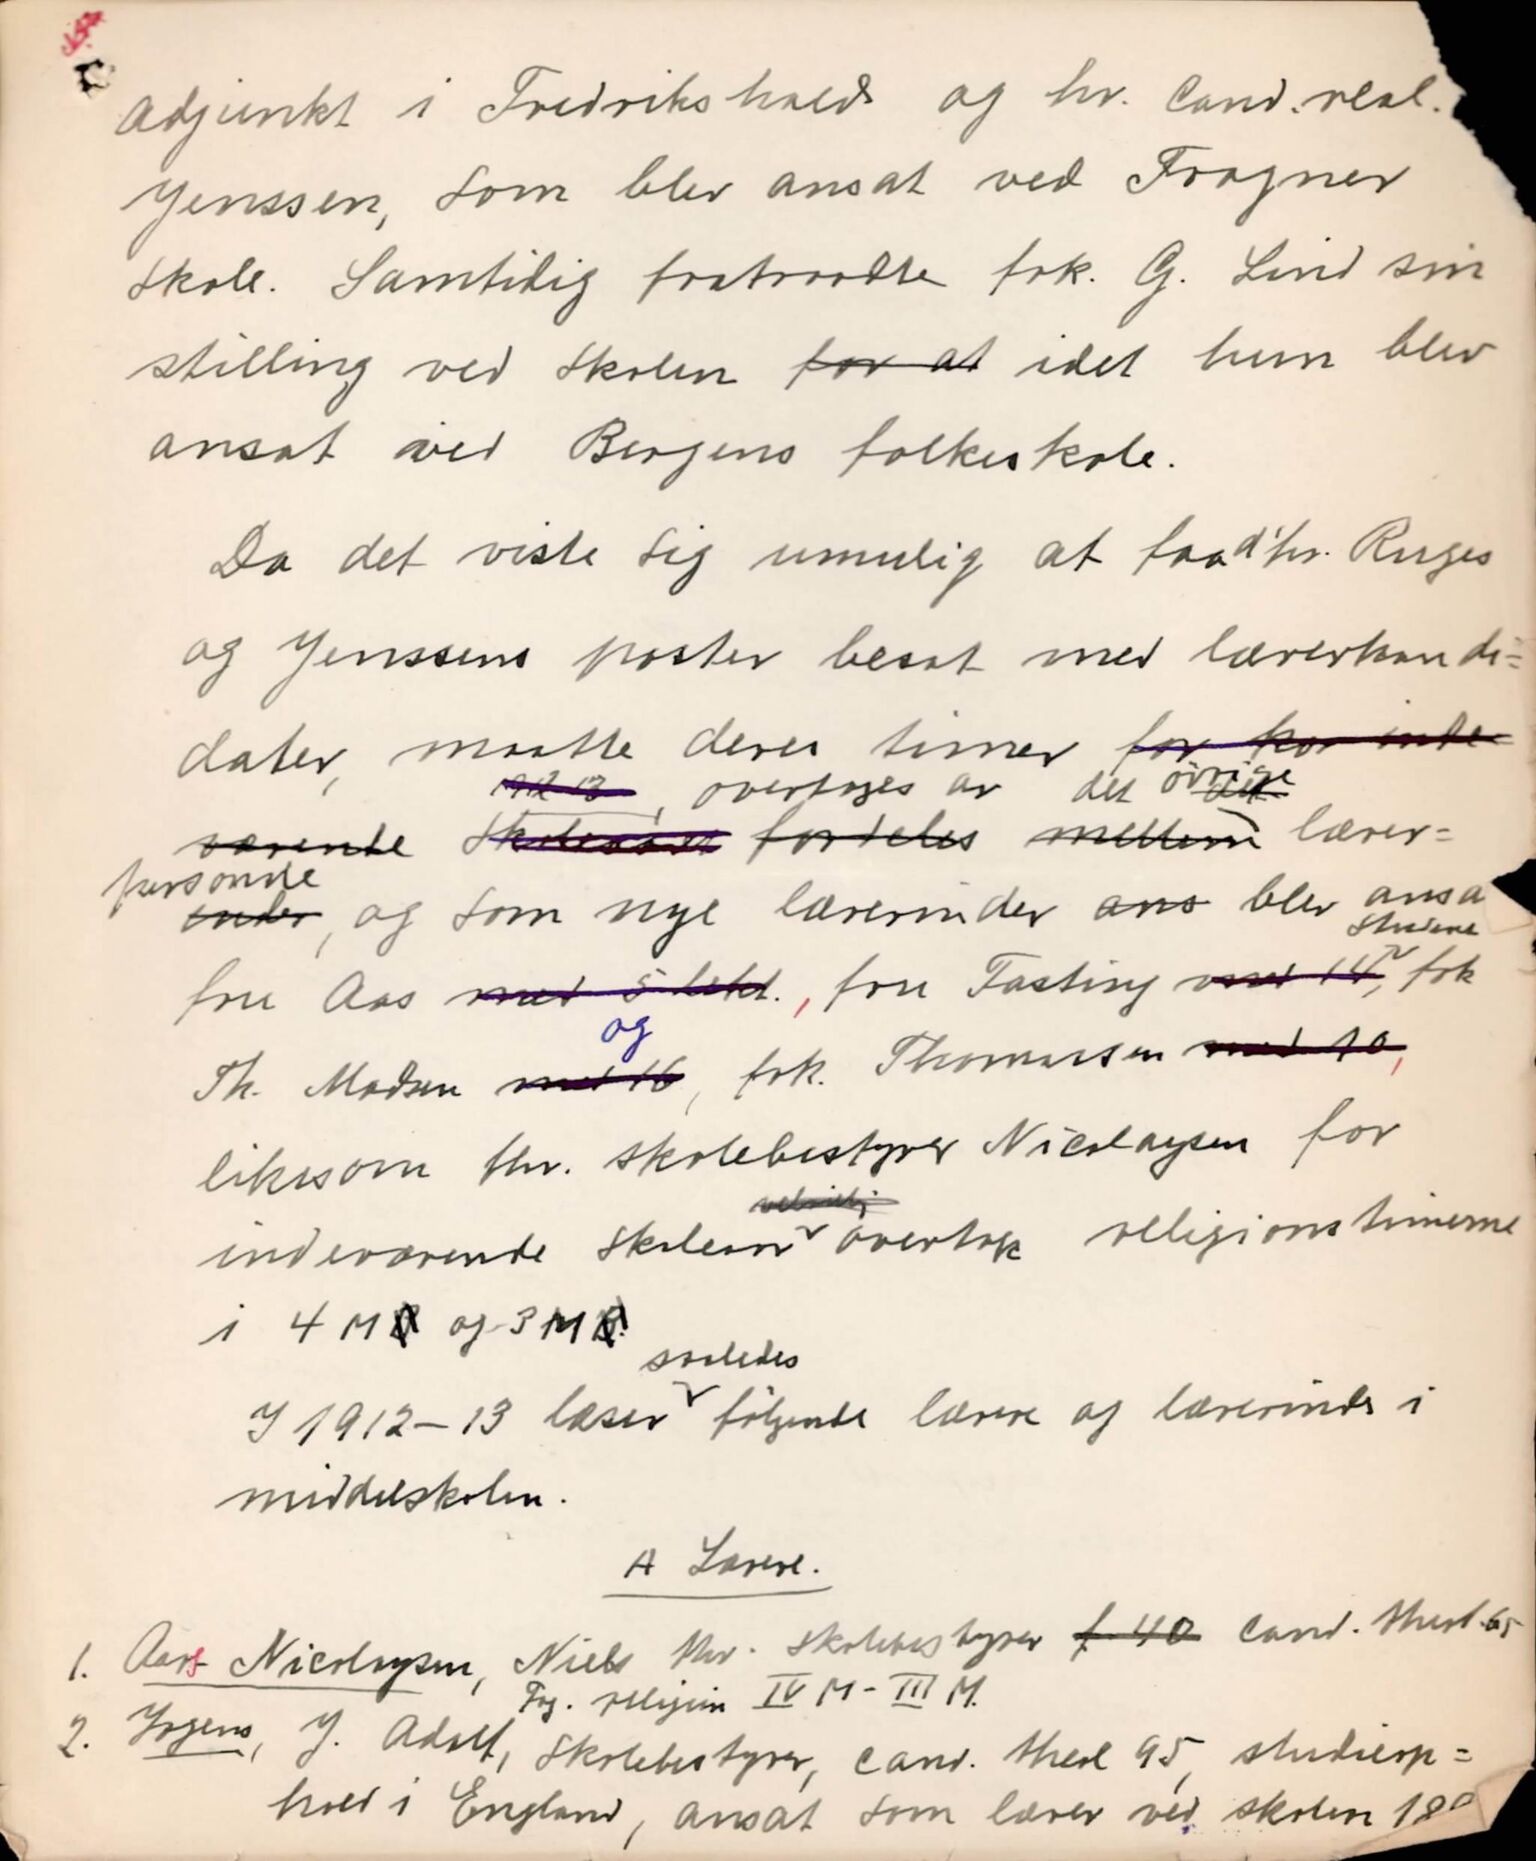 adjunkt i Fredrikshald og hr. Cand. real.
Jenssen, som blev ansat ved Frogner
skole. Samtidig fratraadte frk. G. Lind sin
stilling ved skolen for at idet hun blev
ansat ved Bergens folkeskole.
Da det viste sig umulig at faa d'hr. Ruges
og Jenssens poster besat med lærerkandi=
dater, maatte deres timer for kor inde-
1912-13, overtages av det øvrige det
værende skoleaar fordeles mellem lærer=
personale
inder, og som nye lærerinder ans blev ansa
fru Aas med 5 lekt., fru Fasting med 14, frk
og
Th. Madsen med 16, frk. Thomassen med 10,
likesom hr. skolebestyrer Nicolaysen for
velvillig
indeværende skoleaar overtok religionstimerne
i 4 M og 3 M
saaledes
I 1912-13 læser følgende lærere og lærerinder i
middelskolen.
A Lærere.
1. Aars Nicolaysen, Niels hr. skolebestyrer f. 40 cand. theol. 65
Fag. religion IV M - III M.
2. Irgens, J. Adolf, skolebestyrer, cand. theol 95, studieop=
hold i England, ansat som lærer ved skolen 18